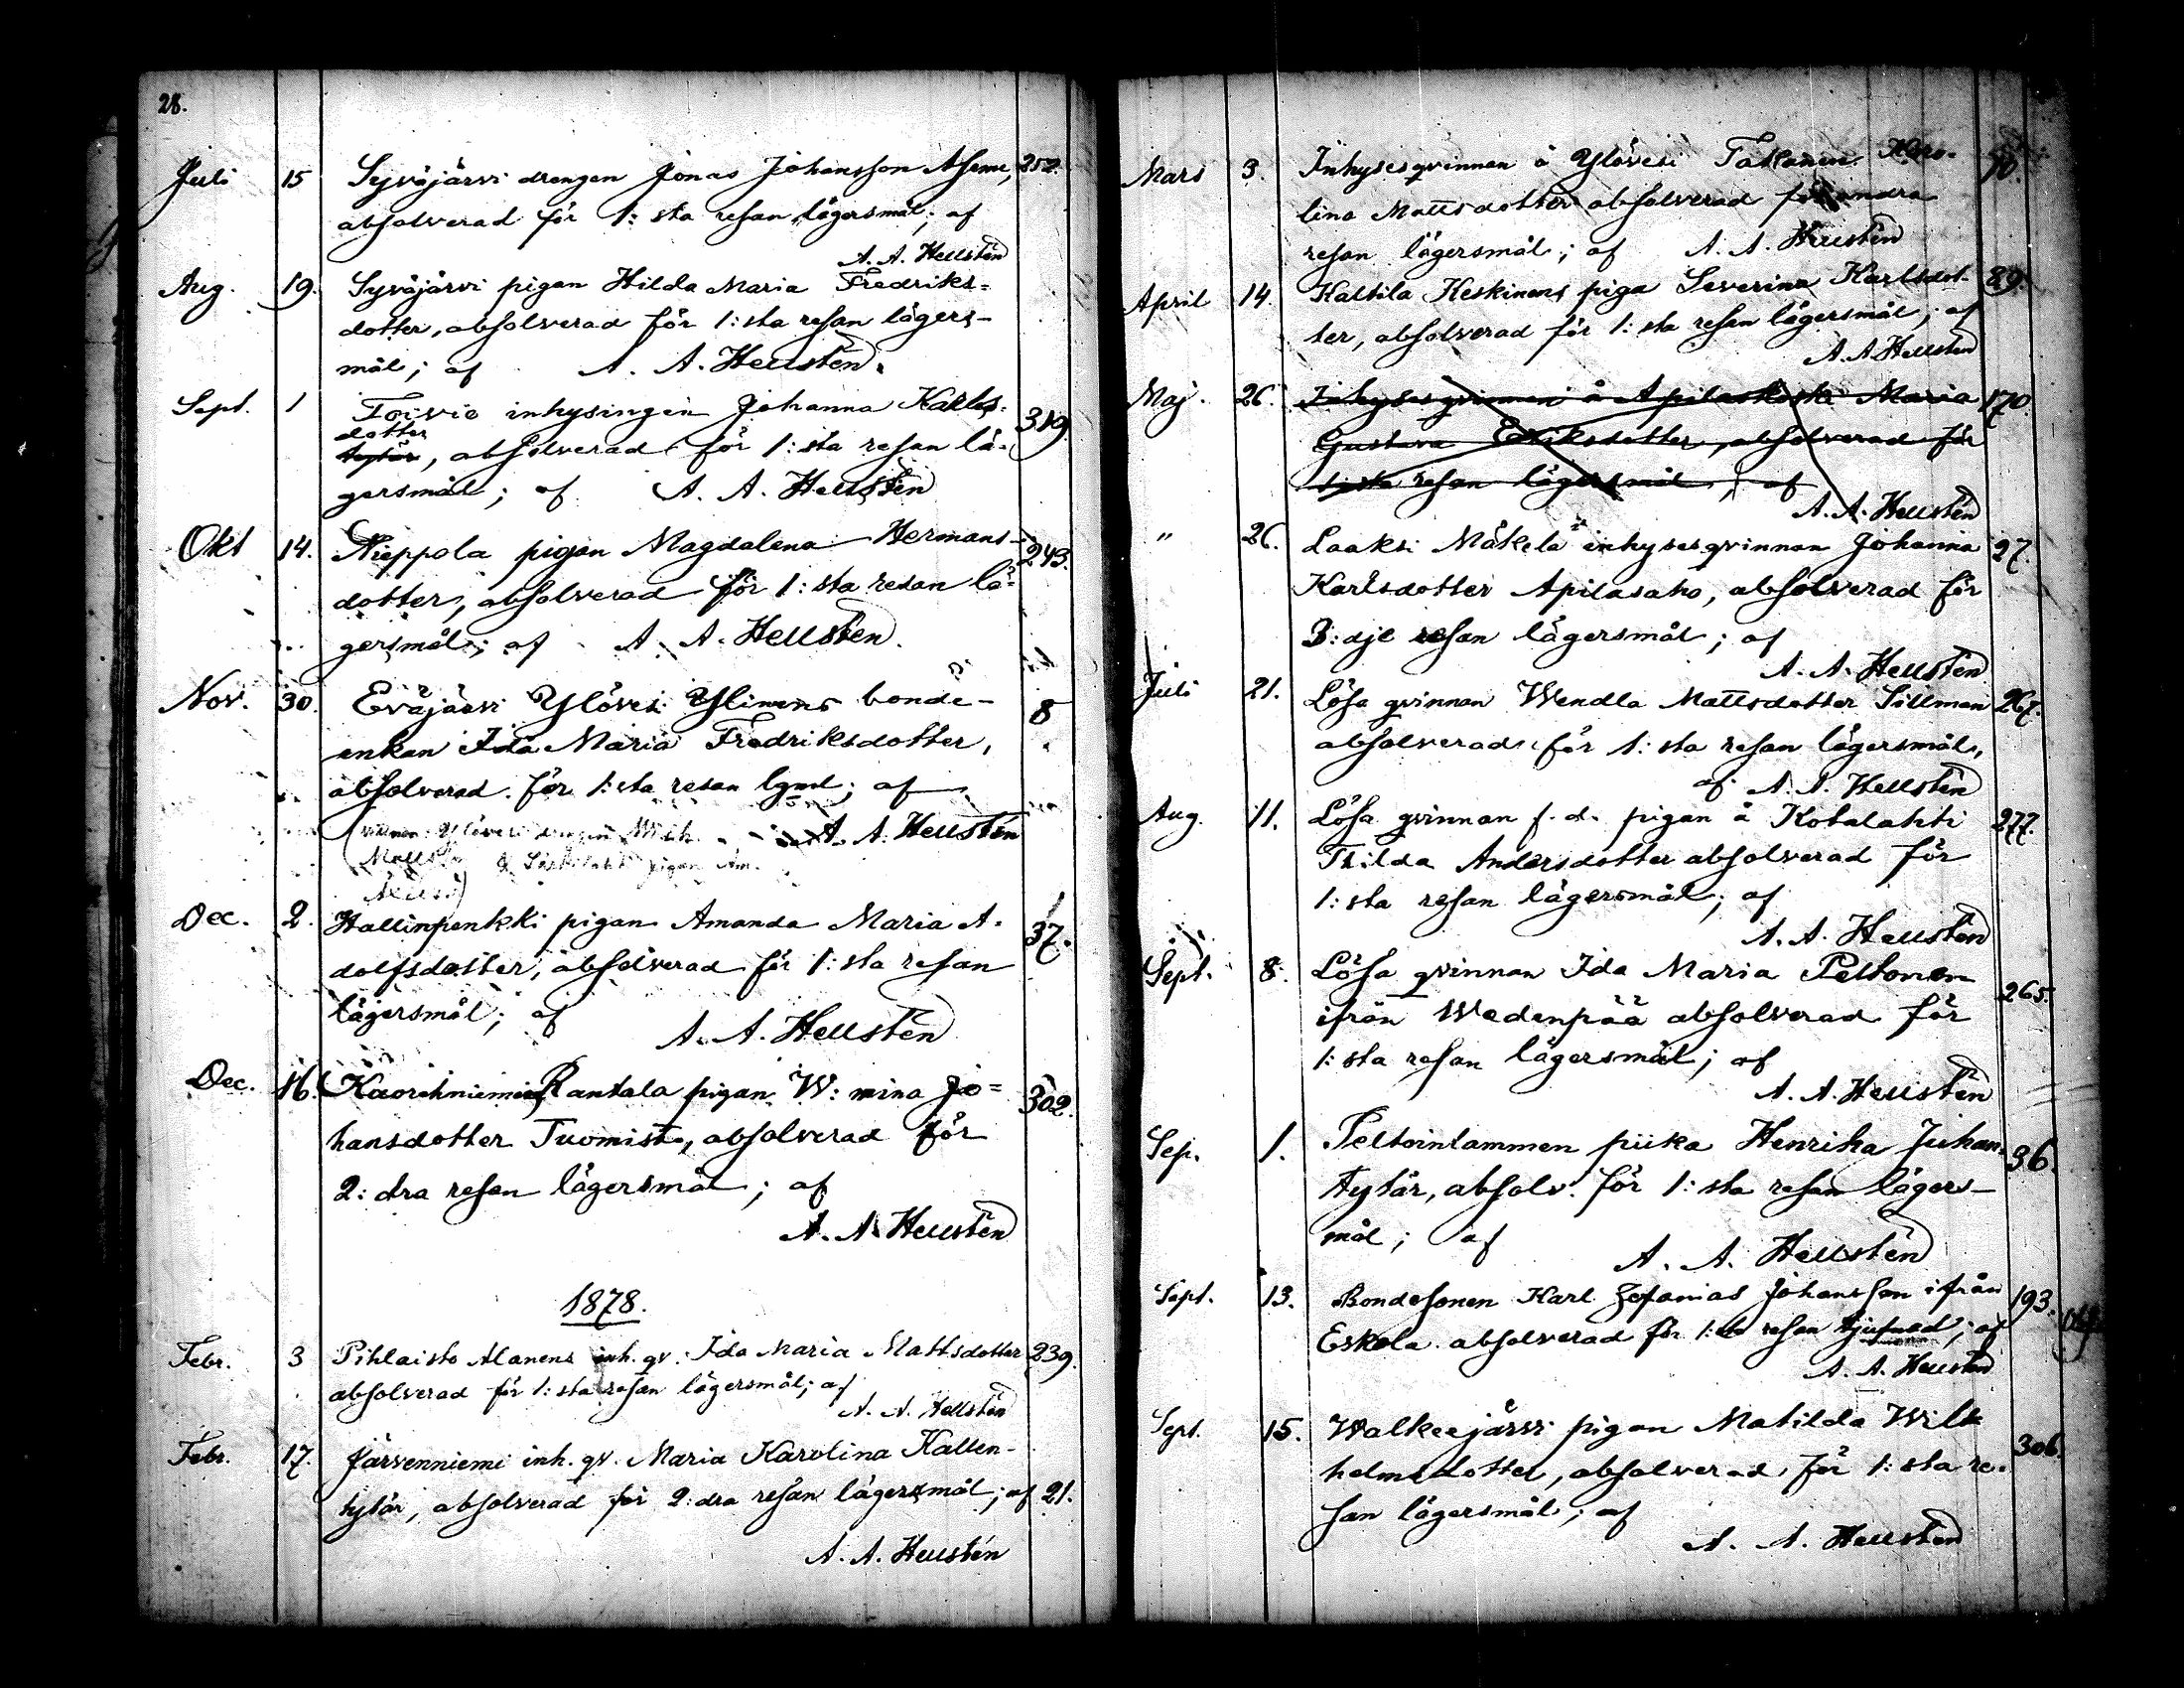 28.
Juli 15 Syväjärvi drengen Jonas Johansson Ahrme, 252.
absolverad för 1:sta resan lägersmål; af
A. A. Hellstén
Aug. 19. Syväjärvi pigan Hilda Maria Fredriks-
dotter, absolverad för 1:sta resan lägers-
mål; af A. A. Hellstén.
Sept. 1 Torvio inhysingen Johanna Kalles-
dotter
tytär, absolverad för 1:sta resan lä- 319.
gersmål; af A. A. Hellstén
Okt 14. Nieppola pigan Magdalena Hermans- 243.
dotter, absolverad för 1:sta resan lä-
gersmål; af A. A. Hellstén.
Nov. 30. Eväjärvi Ylövesi Ylinens bonde- 8
enkan Ida Maria Fredriksdotter,
absolverad för 1:sta resan lgml; af
A. A. Hellstén
Ylövesi drengen Mich.
Mattsson & pigan Am.
Dec. 2. Hallinpenkki pigan Amanda Maria A- 37.
dolfsdotter, absolverad för 1:sta resan
lägersmål; af
A. A. Hellstén
Dec. 16. Rantala pigan W:mina Jo- 302.
hansdotter Tuomisto, absolverad för
2:dra resan lägersmål; af
A. A. Hellstén
1878.
Febr. 3 Pihlaisto Alanens inh. qv. Ida Maria Mattsdotter 239.
absolverad för 1:sta resan lägersmål; af
A. A. Hellstén
Febr. 17. Järvenniemi inh. qv. Maria Karolina Kallen-
tytär, absolverad för 2:dra resan lägersmål; af 21.
A. A. Hellstén
Mars 3. Inhysesqvinnan å Ylövesi Karo- 10.
lina Mattsdotter absolverad för andra
resan lägersmål; af A. A. Hellstén
April 14. Kaltila Keskinens piga Severina Karlsdot- 89.
ter, absolverad för 1:sta resan lägersmål; af
A. A. Hellstén
Maj. 26. Inhysesqvinnan å Apilaskoski Maria 170
Gustava Eriksdotter, absolverad för
1:sta resan lägersmål; af
A. A. Hellstén
" 26. Laaksi Mäkelä inhysesqvinnan Johanna 27.
Karlsdotter Apilasaho, absolverad för
3:dje resan lägersmål; af
A. A. Hellstén
Juli 21. Lösa qvinnan Wendla Mattsdotter Sillman 267.
absolverad för 1:sta resan lägersmål,
af A. A. Hellstén
Aug. 11. Lösa qvinnan f. d. pigan å Kotalahti 277.
Thilda Andersdotter absolverad för
1:sta resan lägersmål; af
A. A. Hellstén
Sept. 8. Lösa qvinnan Ida Maria Peltonen
ifrån Wedenpää absolverad för 265.
1:sta resan lägersmål; af
A. A. Hellstén
Sep. 1. Peltoinlammen piika Henrika Juhan- 36.
tytär, absolv. för 1:sta resan lägers-
mål; af
A. A. Hellstén
Sept. 13. Bondesonen Karl Zefanias Johansson ifrån 193.
Eskola absolverad för 1:sta resan tjufnad; af
A. A. Hellstén
Sept. 15. Walkeejärvi pigan Matilda Wil- 306.
helmsdotter, absolverad för 1:sta re-
san lägersmål; af
A. A. Hellstén